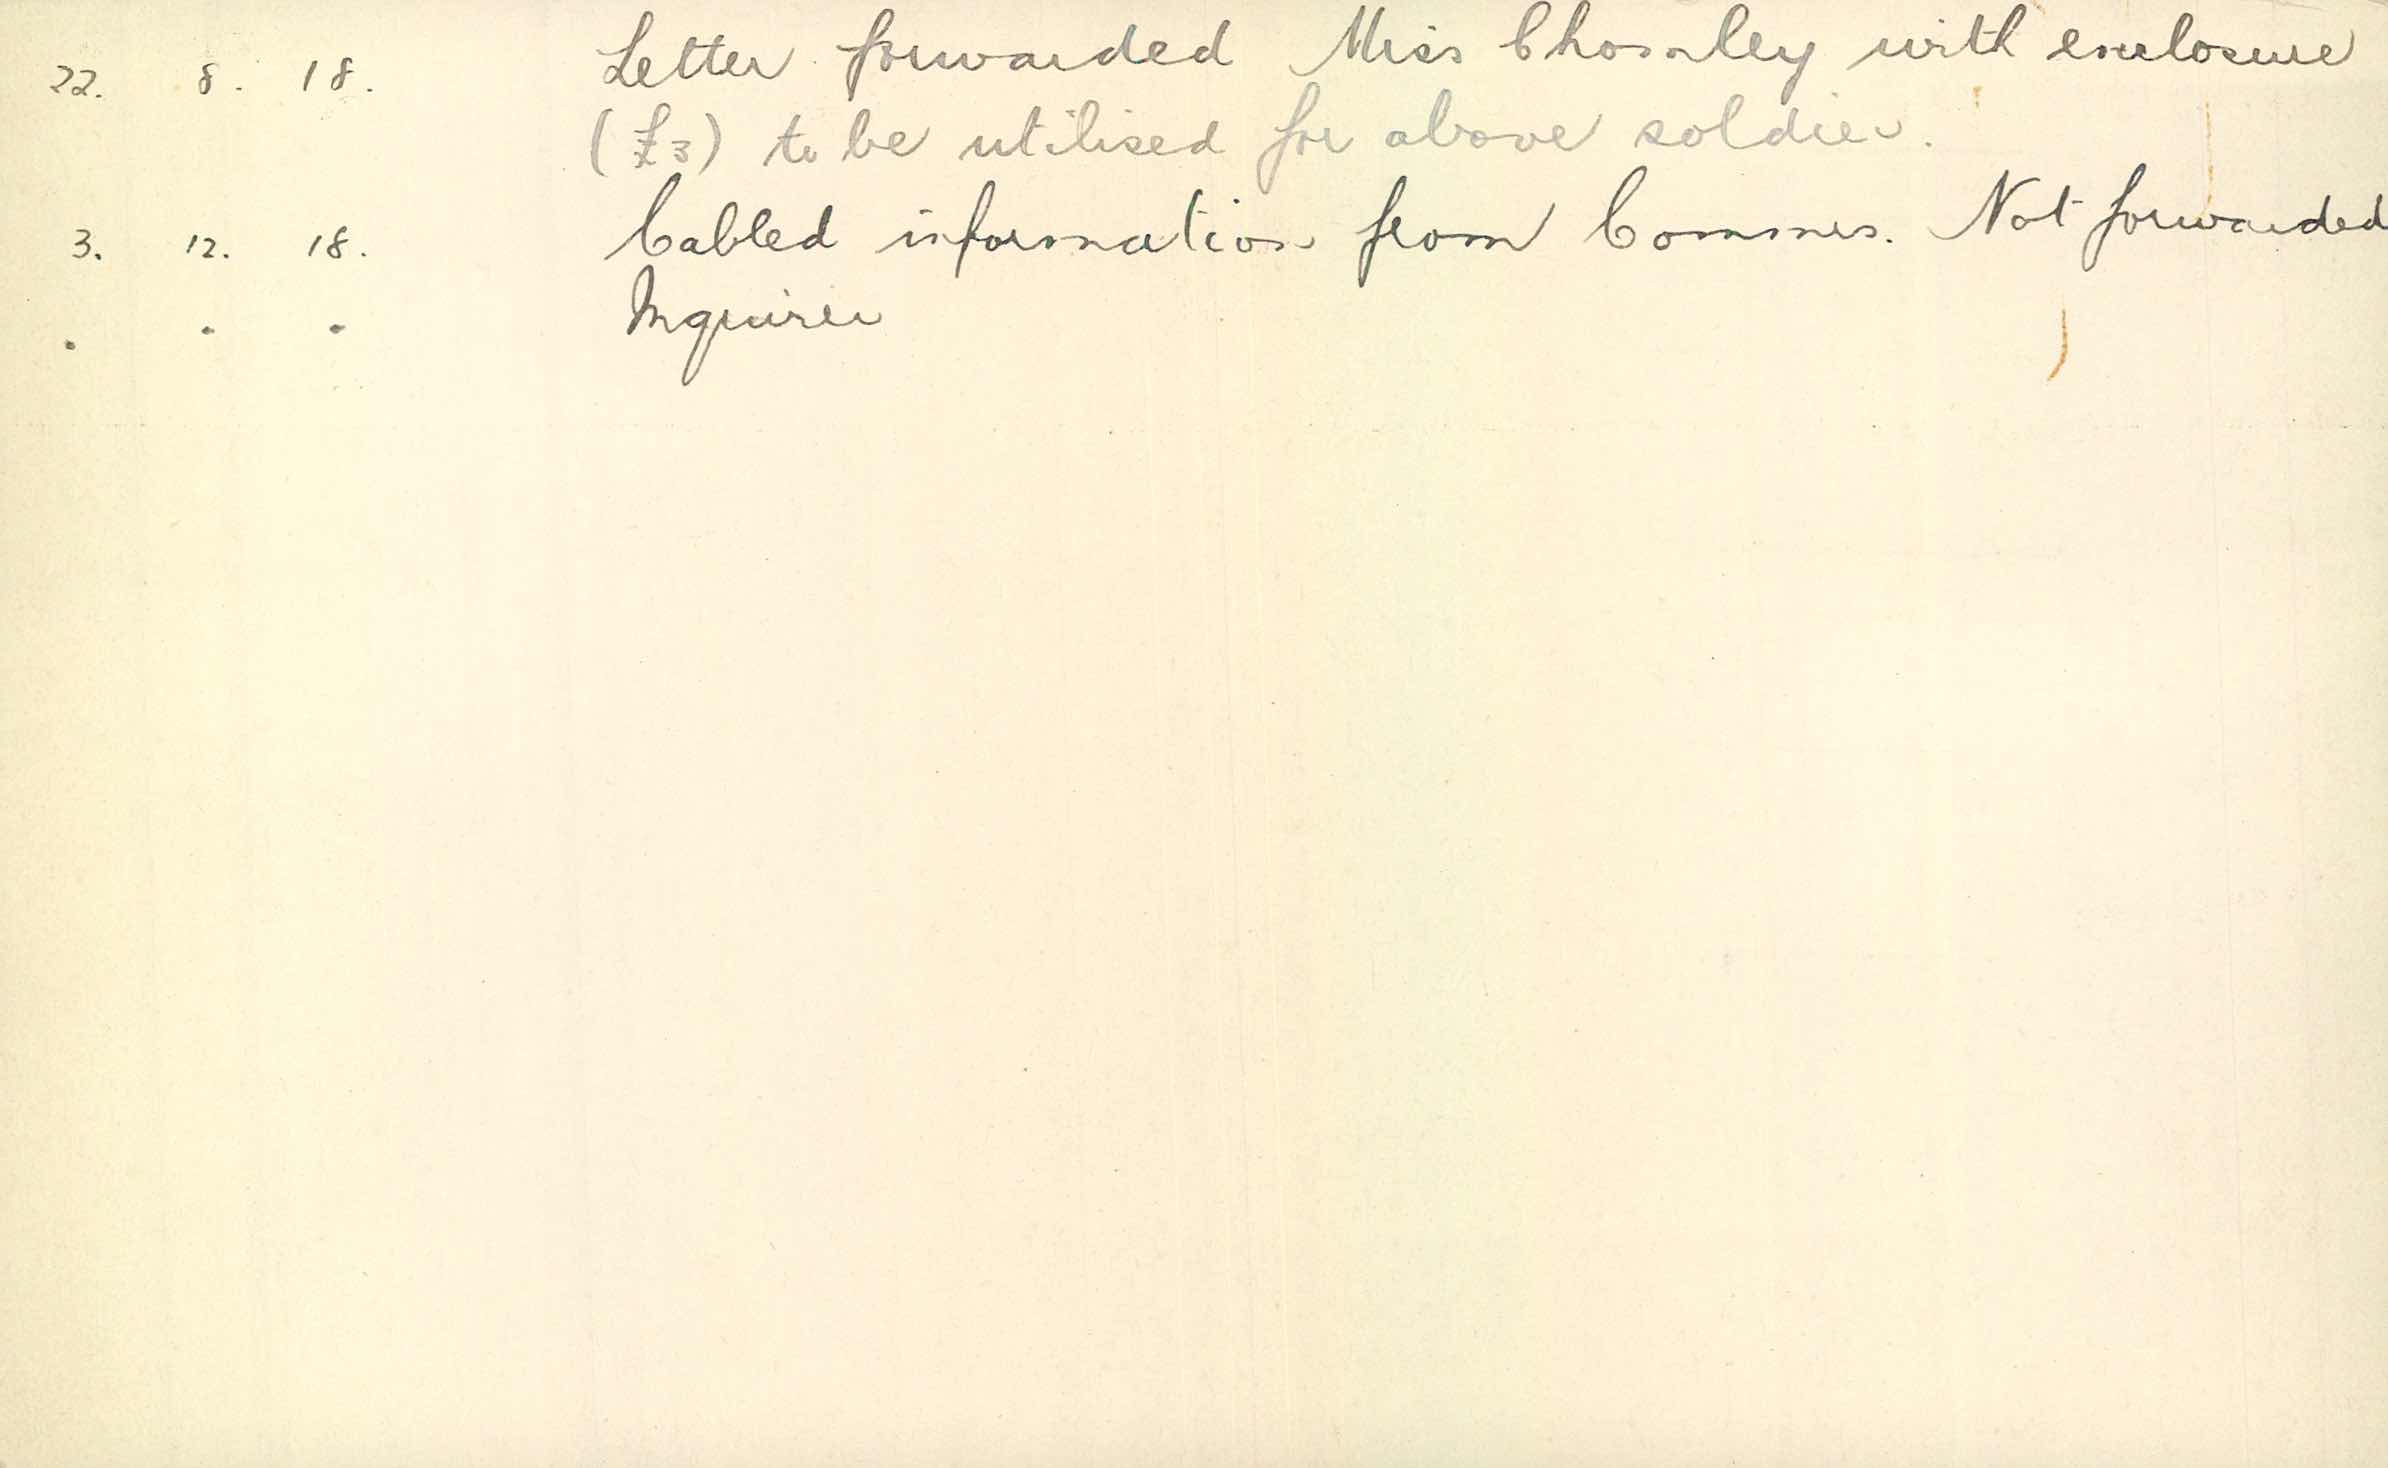 22. 8. 18. Letter forwarded Miss Chomley with enclosure
(£3) to be utilised for above soldier.
3. 12. 18. Cabled information from Commrs. Not forwarded
" " " Inquirer